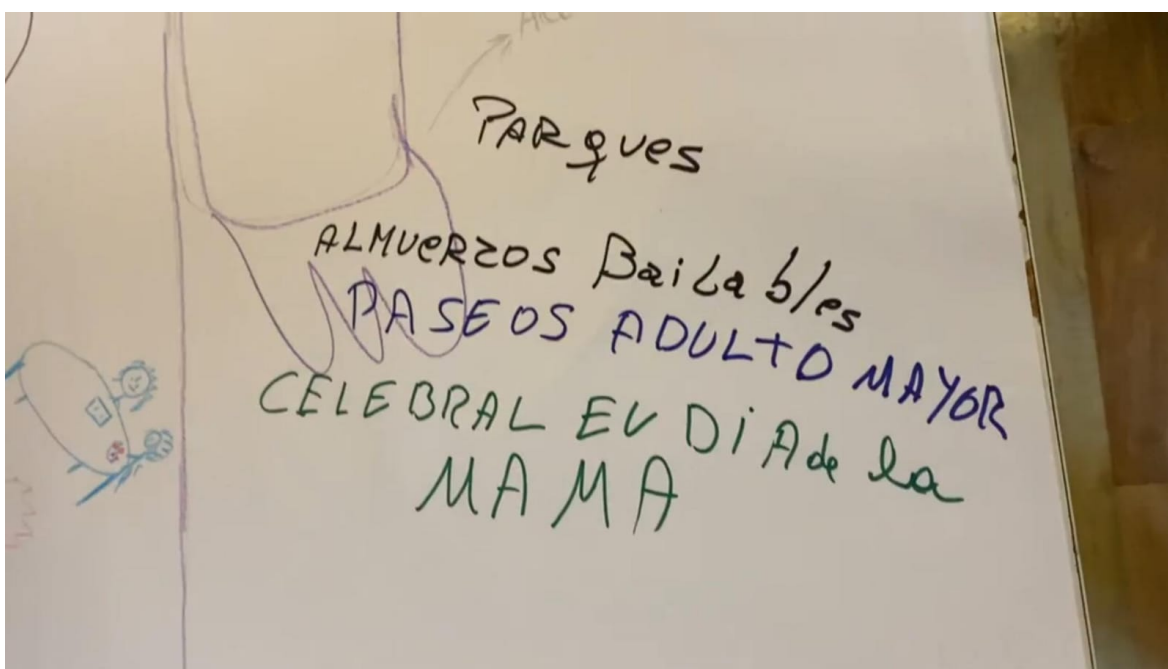 PARques
ALMUeRzOS BaiLables
PASEOS ADULTO MAYOR
CELEBRAL EU DiA de la
MAMA